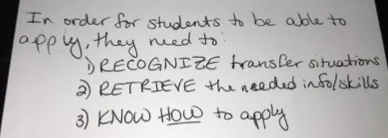 In order for students to be able to
apply, they need to:
1) RECOGNIZE transfer situations
2) RETRIEVE the needed info/skills
3) KNOW HOW to apply